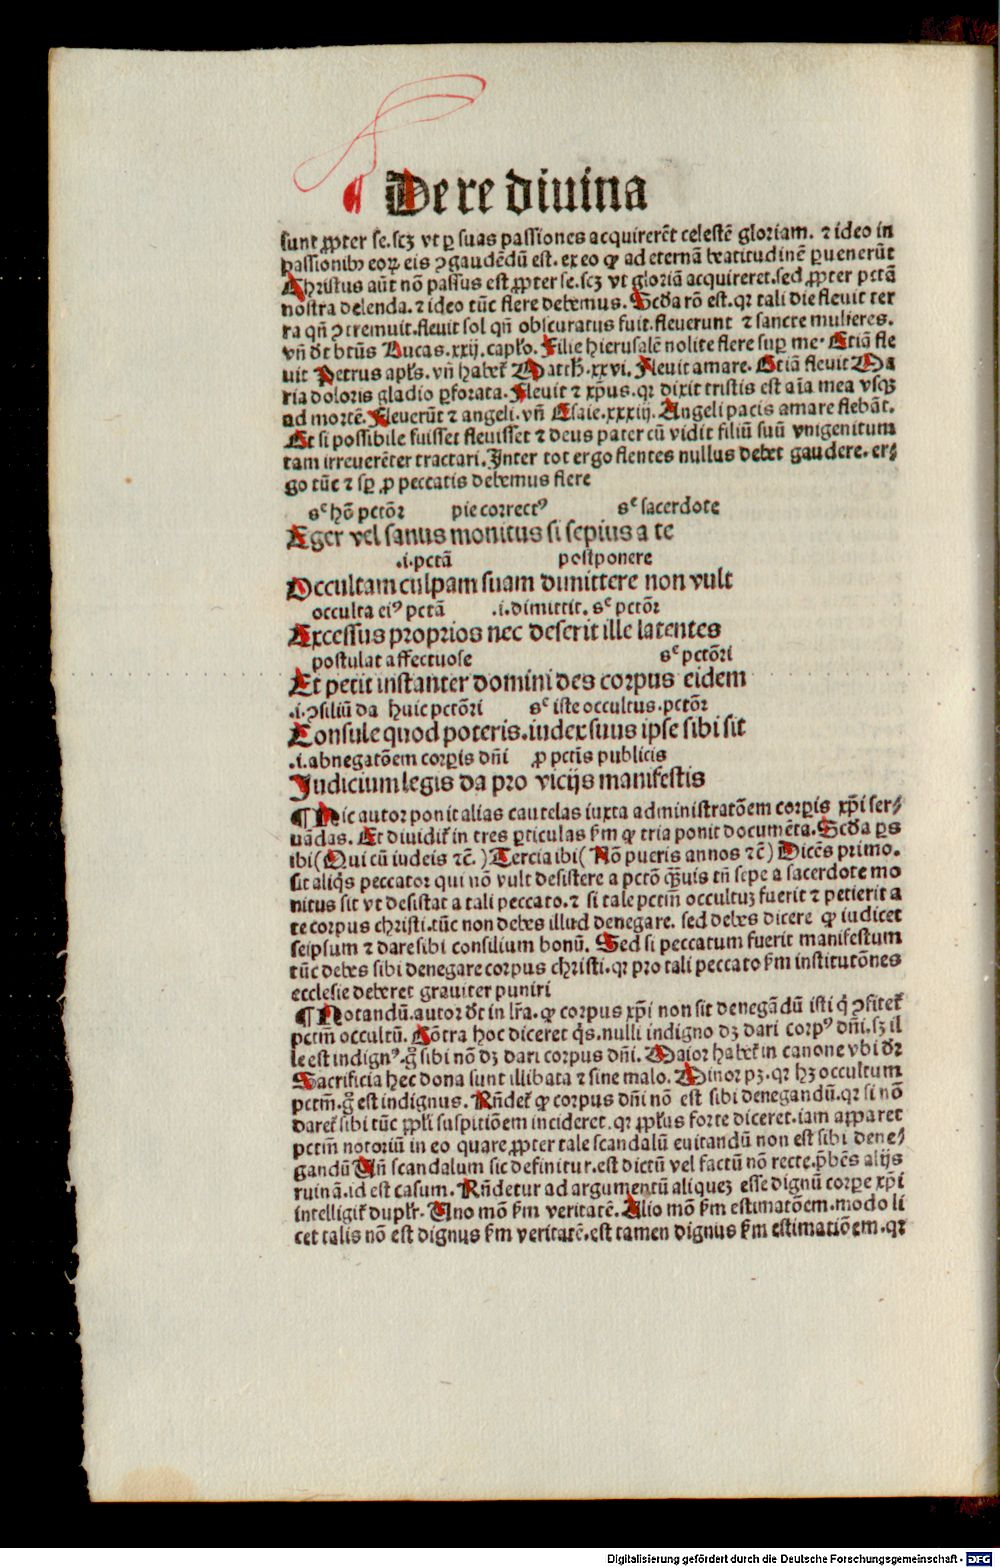 De re diuina
sunt ꝓpter se.scꝫ vt ꝑ suas passiones acquirerēt celestē gloriam. ⁊ ideo in
passionibꝰ eoꝝ eis ꝯgaudēdū est. ex eo ꝙ ad eternā beatitudinē ꝑuenerūt
Christus aūt nō passus est ꝓpter se.scꝫ vt gloriā acquireret.sed ꝓpter pctā
nostra delenda. ⁊ ideo tūc flere debemus. Scd̓a rō est.qꝛ tali die fleuit ter
ra qn̄ ꝯtremuit.fleuit sol qn̄ obscuratus fuit.fleuerunt ⁊ sancte mulieres.
vn̄ dt̓ btūs Lucas.xxij.capło. Filie hierusalē nolite flere suꝑ me. Etiā fle
uit Petrus apłs. vn̄ habet̓ Matth̓.xxvi. Fleuit amare. Etiā fleuit Ma
ria doloris gladio ꝑforata. Fleuit ⁊ xp̄us.qꝛ dixit tristis est aīa mea vsqꝫ
ad mortē. Fleuerūt ⁊ angeli.vn̄ Esaie.xxxiij. Angeli pacis amare flebāt.
Et si possibile fuisset fleuisset ⁊ deus pater cū vidit filiū suū vnigenitum
tam irreuerēter tractari. Inter tot ergo flentes nullus debet gaudere. er⸗
go tūc ⁊ sꝑ ꝓ peccatis debemus flere
sᶜ hō pctōꝛ pie correctꝰ sᶜ sacerdote
Eger vel sanus monitus si sepius a te
.i.pctā postponere
Occultam culpam suam dimittere non vult
occulta eiꝰ pctā .i.dimittit. sᶜ pctōꝛ
Excessus proprios nec deserit ille latentes
postulat affectuose sᶜ pctōri
Et petit instanter domini des corpus eidem
.i.ꝯsiliū da huic pctōri sᶜ iste occultus.pctōꝛ
Consule quod poteris.iudex suus ipse sibi sit
.i.abnegatōem corꝑis dn̄i ꝓ pctīs publicis
Judicium legis da pro vicijs manifestis
¶ Hic autor ponit alias cautelas iuxta administratōem corꝑis xp̄i ser⸗
uādas. Et diuidit̓ in tres ꝑticulas ẜm ꝙ tria ponit documēta. Scd̓a ꝑs
ibi (Qui cū iudeis ⁊c̄.) Tercia ibi (Nō pueris annos ⁊c̄) Dicēs primo.
sit aliqͥs peccator qui nō vult desistere a pctō qꝫuis tn̄ sepe a sacerdote mo
nitus sit vt desistat a tali peccato. ⁊ si tale pctm̄ occultuꝫ fuerit ⁊ petierit a
te corpus christi.tūc non debes illud denegare. sed debes dicere ꝙ iudicet
seipsum ⁊ dare sibi consilium bonū. Sed si peccatum fuerit manifestum
tūc debes sibi denegare corpus christi.qꝛ pro tali peccato ẜm institutōnes
ecclesie deberet grauiter puniri
¶ Notandū.autor dt̓ in lr̄a. ꝙ corpus xp̄i non sit denegādū isti qͥ ꝯfitet̓
pctm̄ occultū. Cōtra hoc diceret qͥs.nulli indigno dꝫ dari corpꝰ dn̄i.sꝫ il
le est indignꝰ.gͦ sibi nō dꝫ dari corpus dn̄i. Maior habet̓ in canone vbi dꝛ
Sacrificia hec dona sunt illibata ⁊ sine malo. Minor pꝫ.qꝛ hꝫ occultum
pctm̄.gͦ est indignus. Rn̄det̓ ꝙ corpus dn̄i nō est sibi denegandū.qꝛ si nō
daret̓ sibi tūc ꝓpłi suspitiōem incideret.qꝛ ꝓpłus forte diceret.iam apparet
pctm̄ notoriū in eo quare ꝓpter tale scandalū euitandū non est sibi dene⸗
gandū Un̄ scandalum sic definitur.est dictū vel factū nō recte.p̄bēs alijs
ruinā.id est casum. Rn̄detur ad argumentū aliquez esse dignū corꝑe xp̄i
intelligit̓ dupłr. Uno mō ẜm veritatē. Alio mō ẜm estimatōem.modo li
cet talis nō est dignus ẜm veritatē.est tamen dignus ẜm estimatiōem.qꝛ
Digitalisierung gefördert durch die Deutsche Forschungsgemeinschaft - DFG